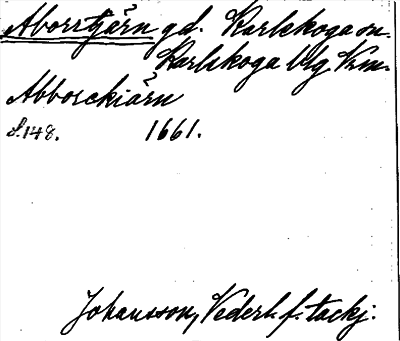 Aborrtjärn gd. Karlskoga sn.
Karlskoga blg Vrm.
Abborckiärn
S. 148. 1661.
Johansson, Vederl. f. tackj.